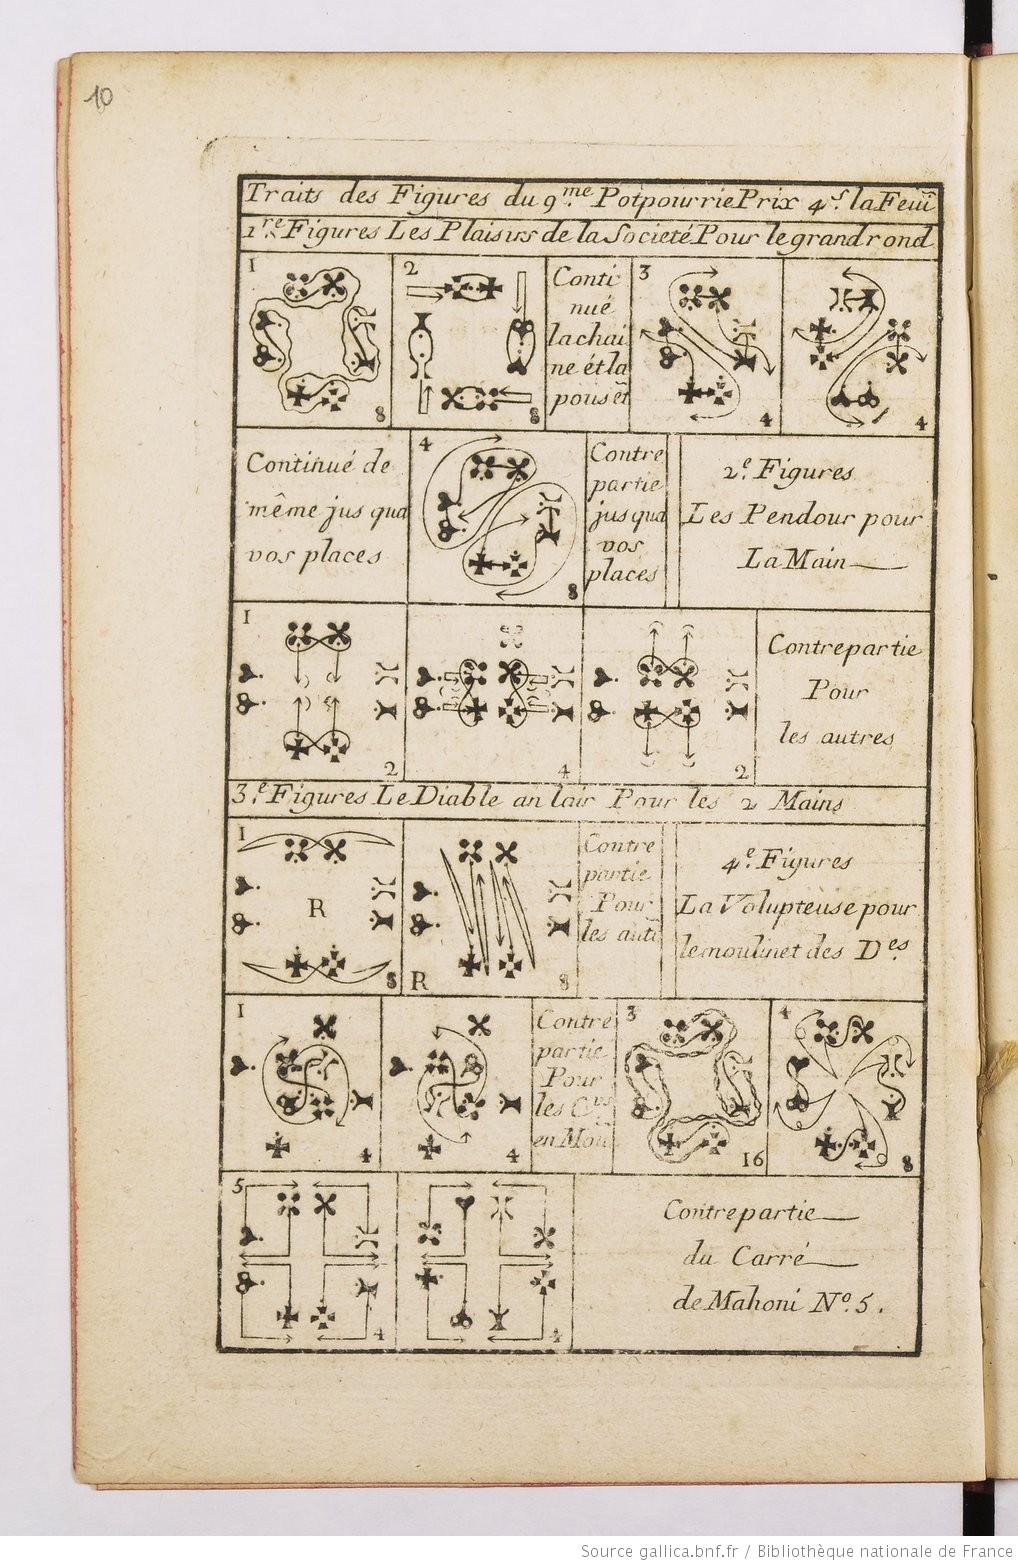 10
Traits des Figures du 9.me Potpourrie Prix 4.s la Feuil
1.re Figures Les Plaisirs de la Societé Pour le grand rond
1
8
2
8
Conti
nué
la chai
ne ét la
pous ét
3
4
4
Continué de
même jus qua
vos places
4
8
Contre
partie
jus qua
vos
places
2.e Figures
Les Pendour pour
La Main
1
2
4
2
Contrepartie
Pour
les autres
3.e Figures Le Diable an lair Pour les 2 Mains
1
R
8
R
8
Contre
partie
Pour
les aut
4.e Figures
La Volupteuse pour
le moulinet des D.es
1
4
4
Contre
partie
Pour
les C.ers
en Mou
3
16
4
8
5
4
4
Contrepartie
du Carré
de Mahoni N.o 5.
Source gallica.bnf.fr / Bibliothèque nationale de France